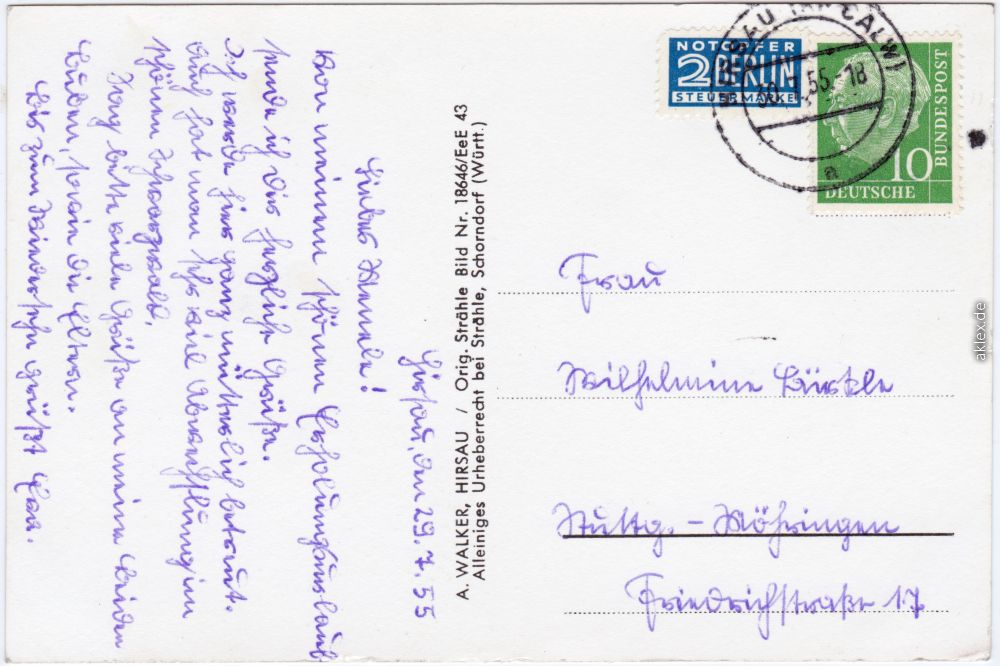 Hirsau, den 29.7.55
Liebes Mamele!
Von meinem schönen Erholungsurlaub
sende ich Dir herzliche Grüße.
Ich werde hier ganz mütterlich betreut.
Auch hat man sehr viel Abwechslung im
schönen Schwarzwald.
Sag bitte viele Grüße an meine beiden
Buben, sowie die Eltern.
Bis zum Wiedersehn grüßt
A. WALKER, HIRSAU / Orig. Strähle Bild Nr. 18646/EeE 43
Alleiniges Urheberrecht bei Strähle, Schorndorf (Württ.)
NOTOPFER
2 BERLIN
STEUERMARKE
HIRSAU (KR CALW)
55.-18
a
10
DEUTSCHE
BUNDESPOST
Frau
Wilhelmine Bürkle
Stuttg. - Möhringen
Friedrichstraße 17
aklex.de